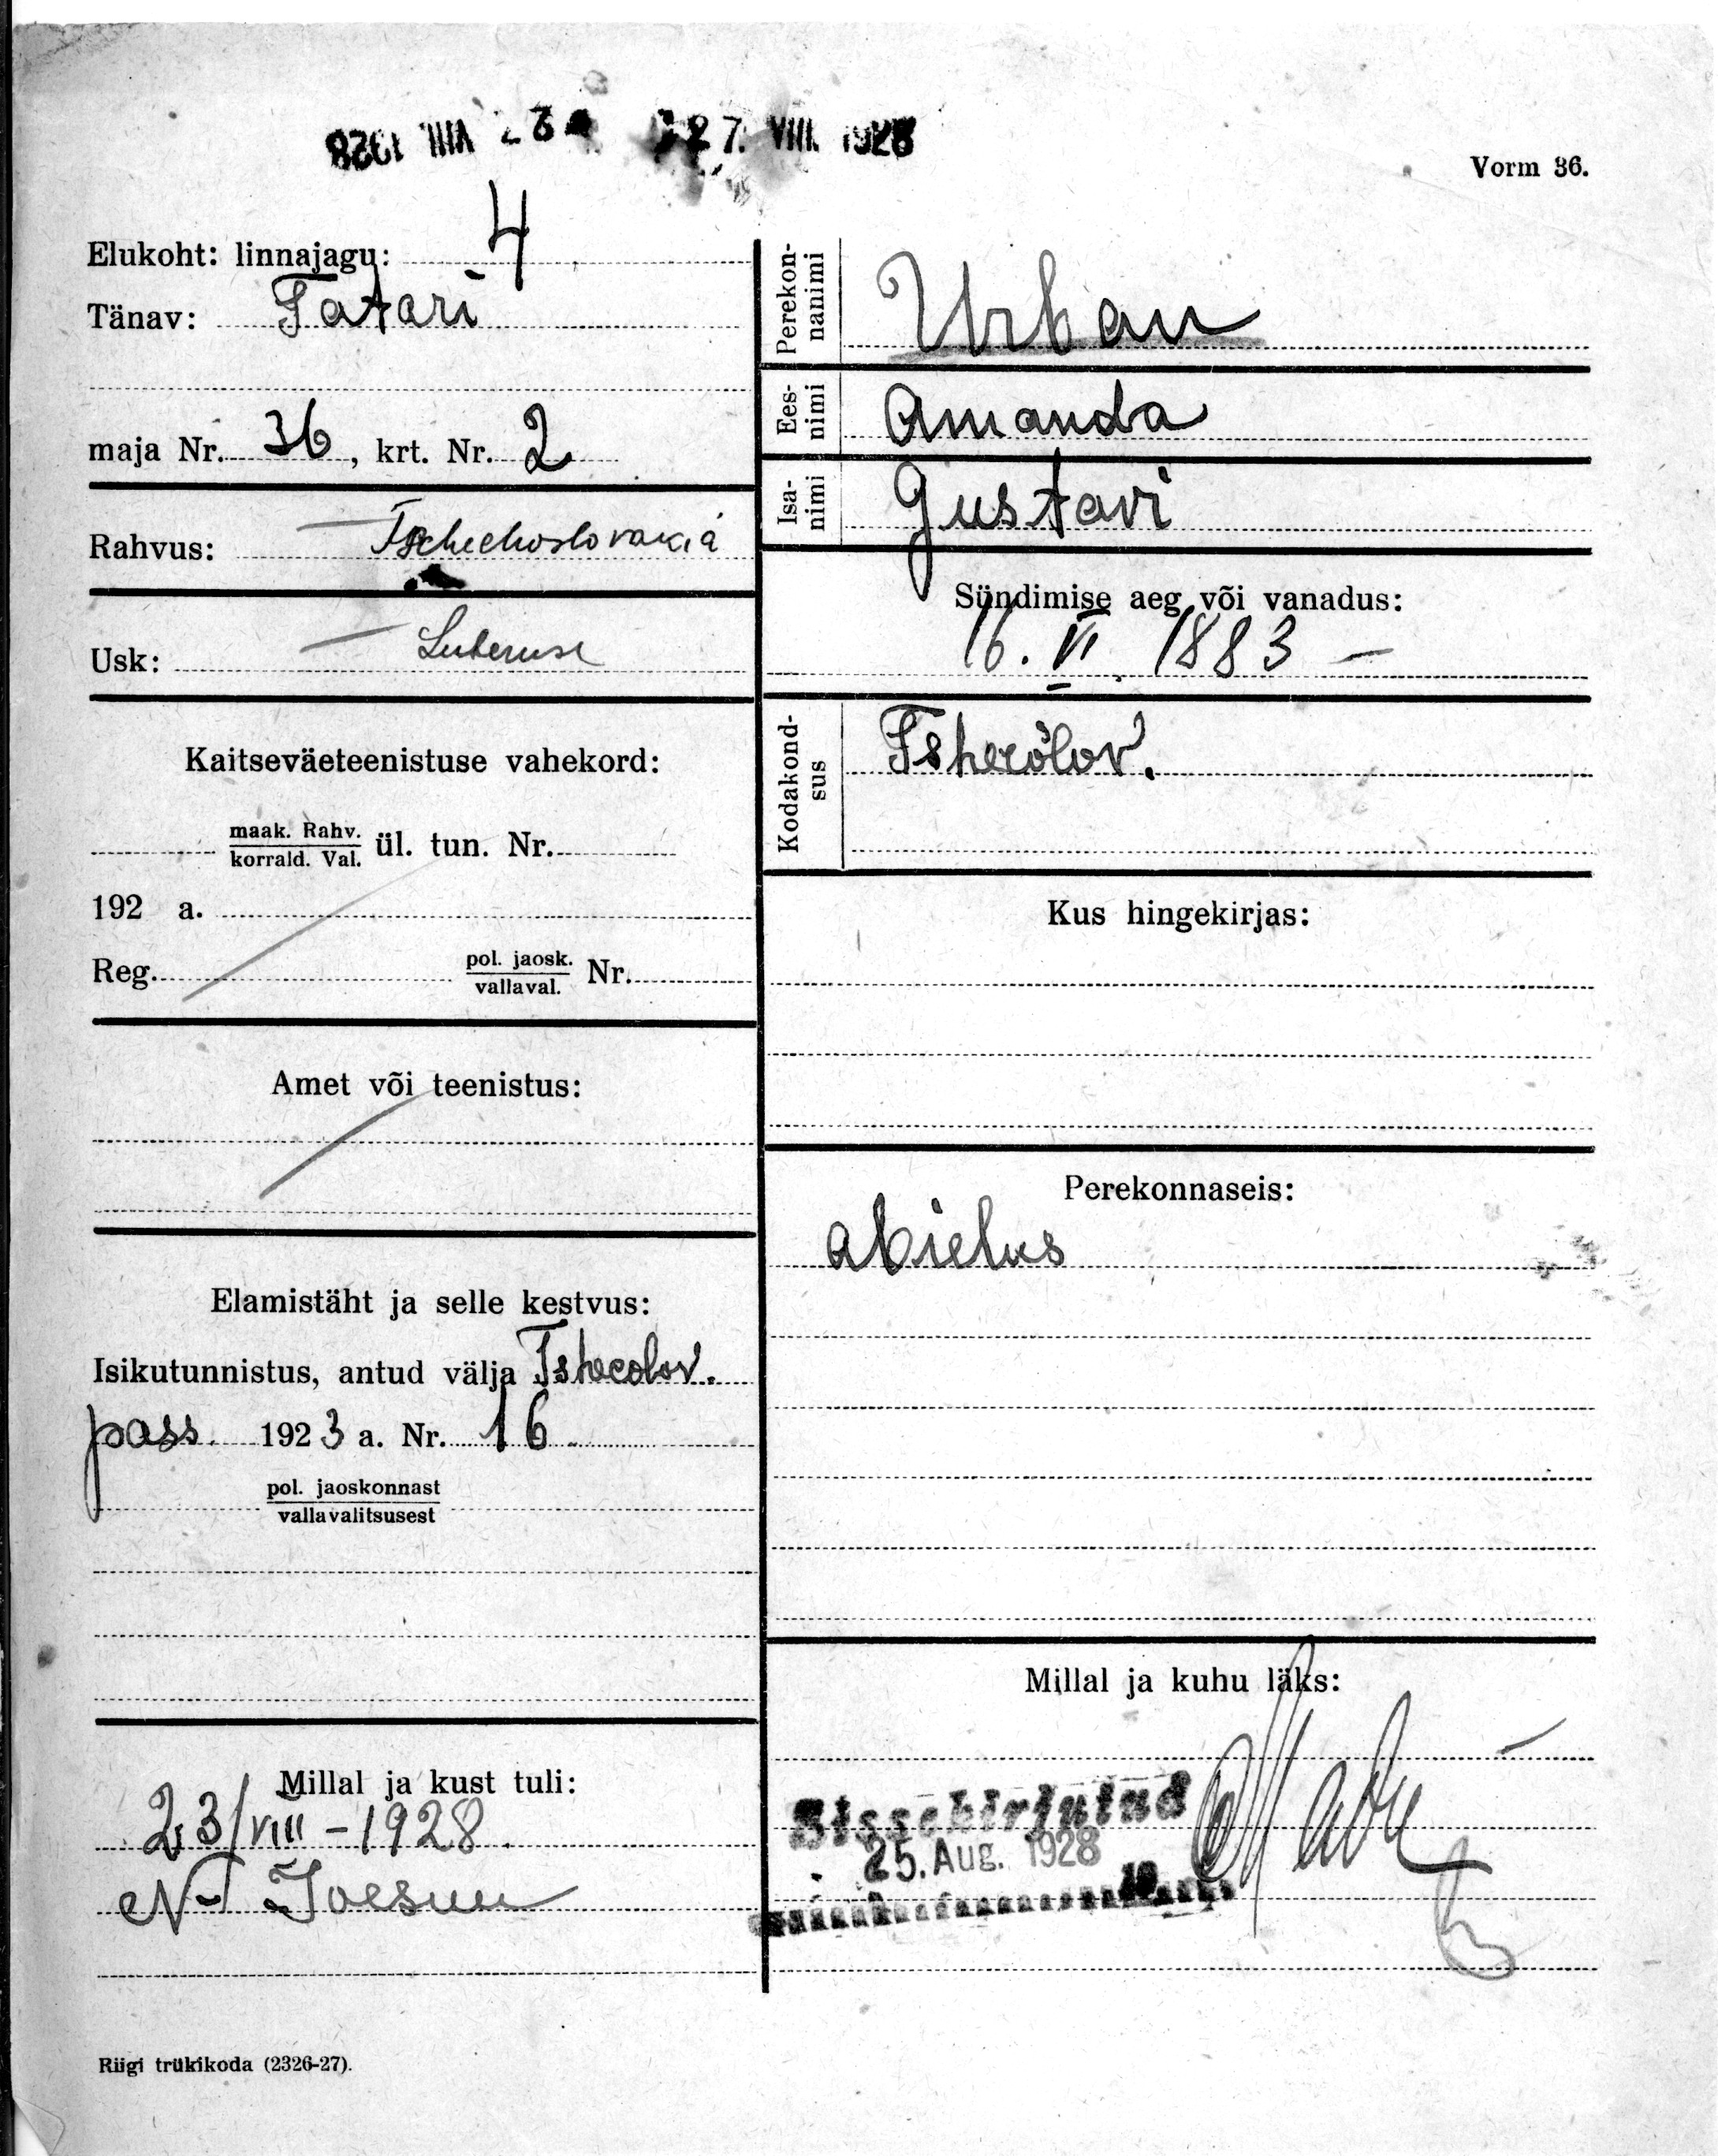 27. VIII. 1928
Vorm 36.
Elukoht: linnajagu: 4
Tänav: Tatari
maja Nr. 36, krt. Nr. 2
Rahvus: Tschechoslovakia
Usk: Luteruse
Kaitseväeteenistuse vahekord:
maak. Rahv.
korrald. Val. ül. tun. Nr.
192 a.
Reg. pol. jaosk.
vallaval. Nr.
Amet või teenistus:
Elamistäht ja selle kestvus:
Isikutunnistus, antud välja Tshecolov.
pass. 1923 a. Nr. 16
pol. jaoskonnast
vallavalitsusest
Millal ja kust tuli:
23/VIII - 1928.
N-Joesuu
Perekon-
nanimi Urban
Ees-
nimi Amanda
Isa-
nimi Gustavi
Sündimise aeg või vanadus:
16. VI. 1883 –
Kodakond-
sus
Kus hingekirjas:
Perekonnaseis:
abielus
Millal ja kuhu läks:
Sissekirjutud
25. Aug. 1928
Riigi trükikoda (2326-27).